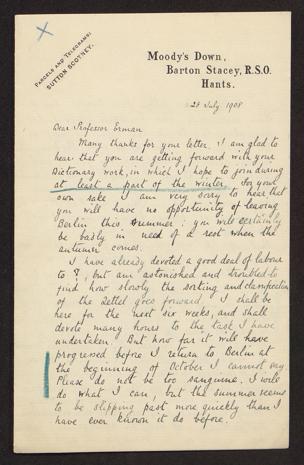 PARCELS AND TELEGRAMS:
SUTTON SCOTNEY.
Moody's Down,
Barton Stacey, R.S.O.
Hants.
28 July 1908
Dear Professor Erman
Many thanks for your letter. I am glad to
hear that you are getting forward with your
Dictionary work, in which I hope to join during
at least a part of the winter. For your
own sake I am very sorry to hear that
you will have no opportunity of leaving
Berlin this summer: you will certainly
be badly in need of a rest when the
autumn comes.
I have already devoted a good deal of labour
to, but am astonished and troubled to
find how slowly the sorting and classification
of the Zettel goes forward. I shall be
here for the next six weeks, and shall
devote many hours to the task I have
undertaken. But how far it will have
progressed before I return to Berlin at
the beginning of October I cannot say.
Please do not be too sanguine. I will
do what I can, but the summer seems
to be slipping past more quickly than I
have ever known it do before.